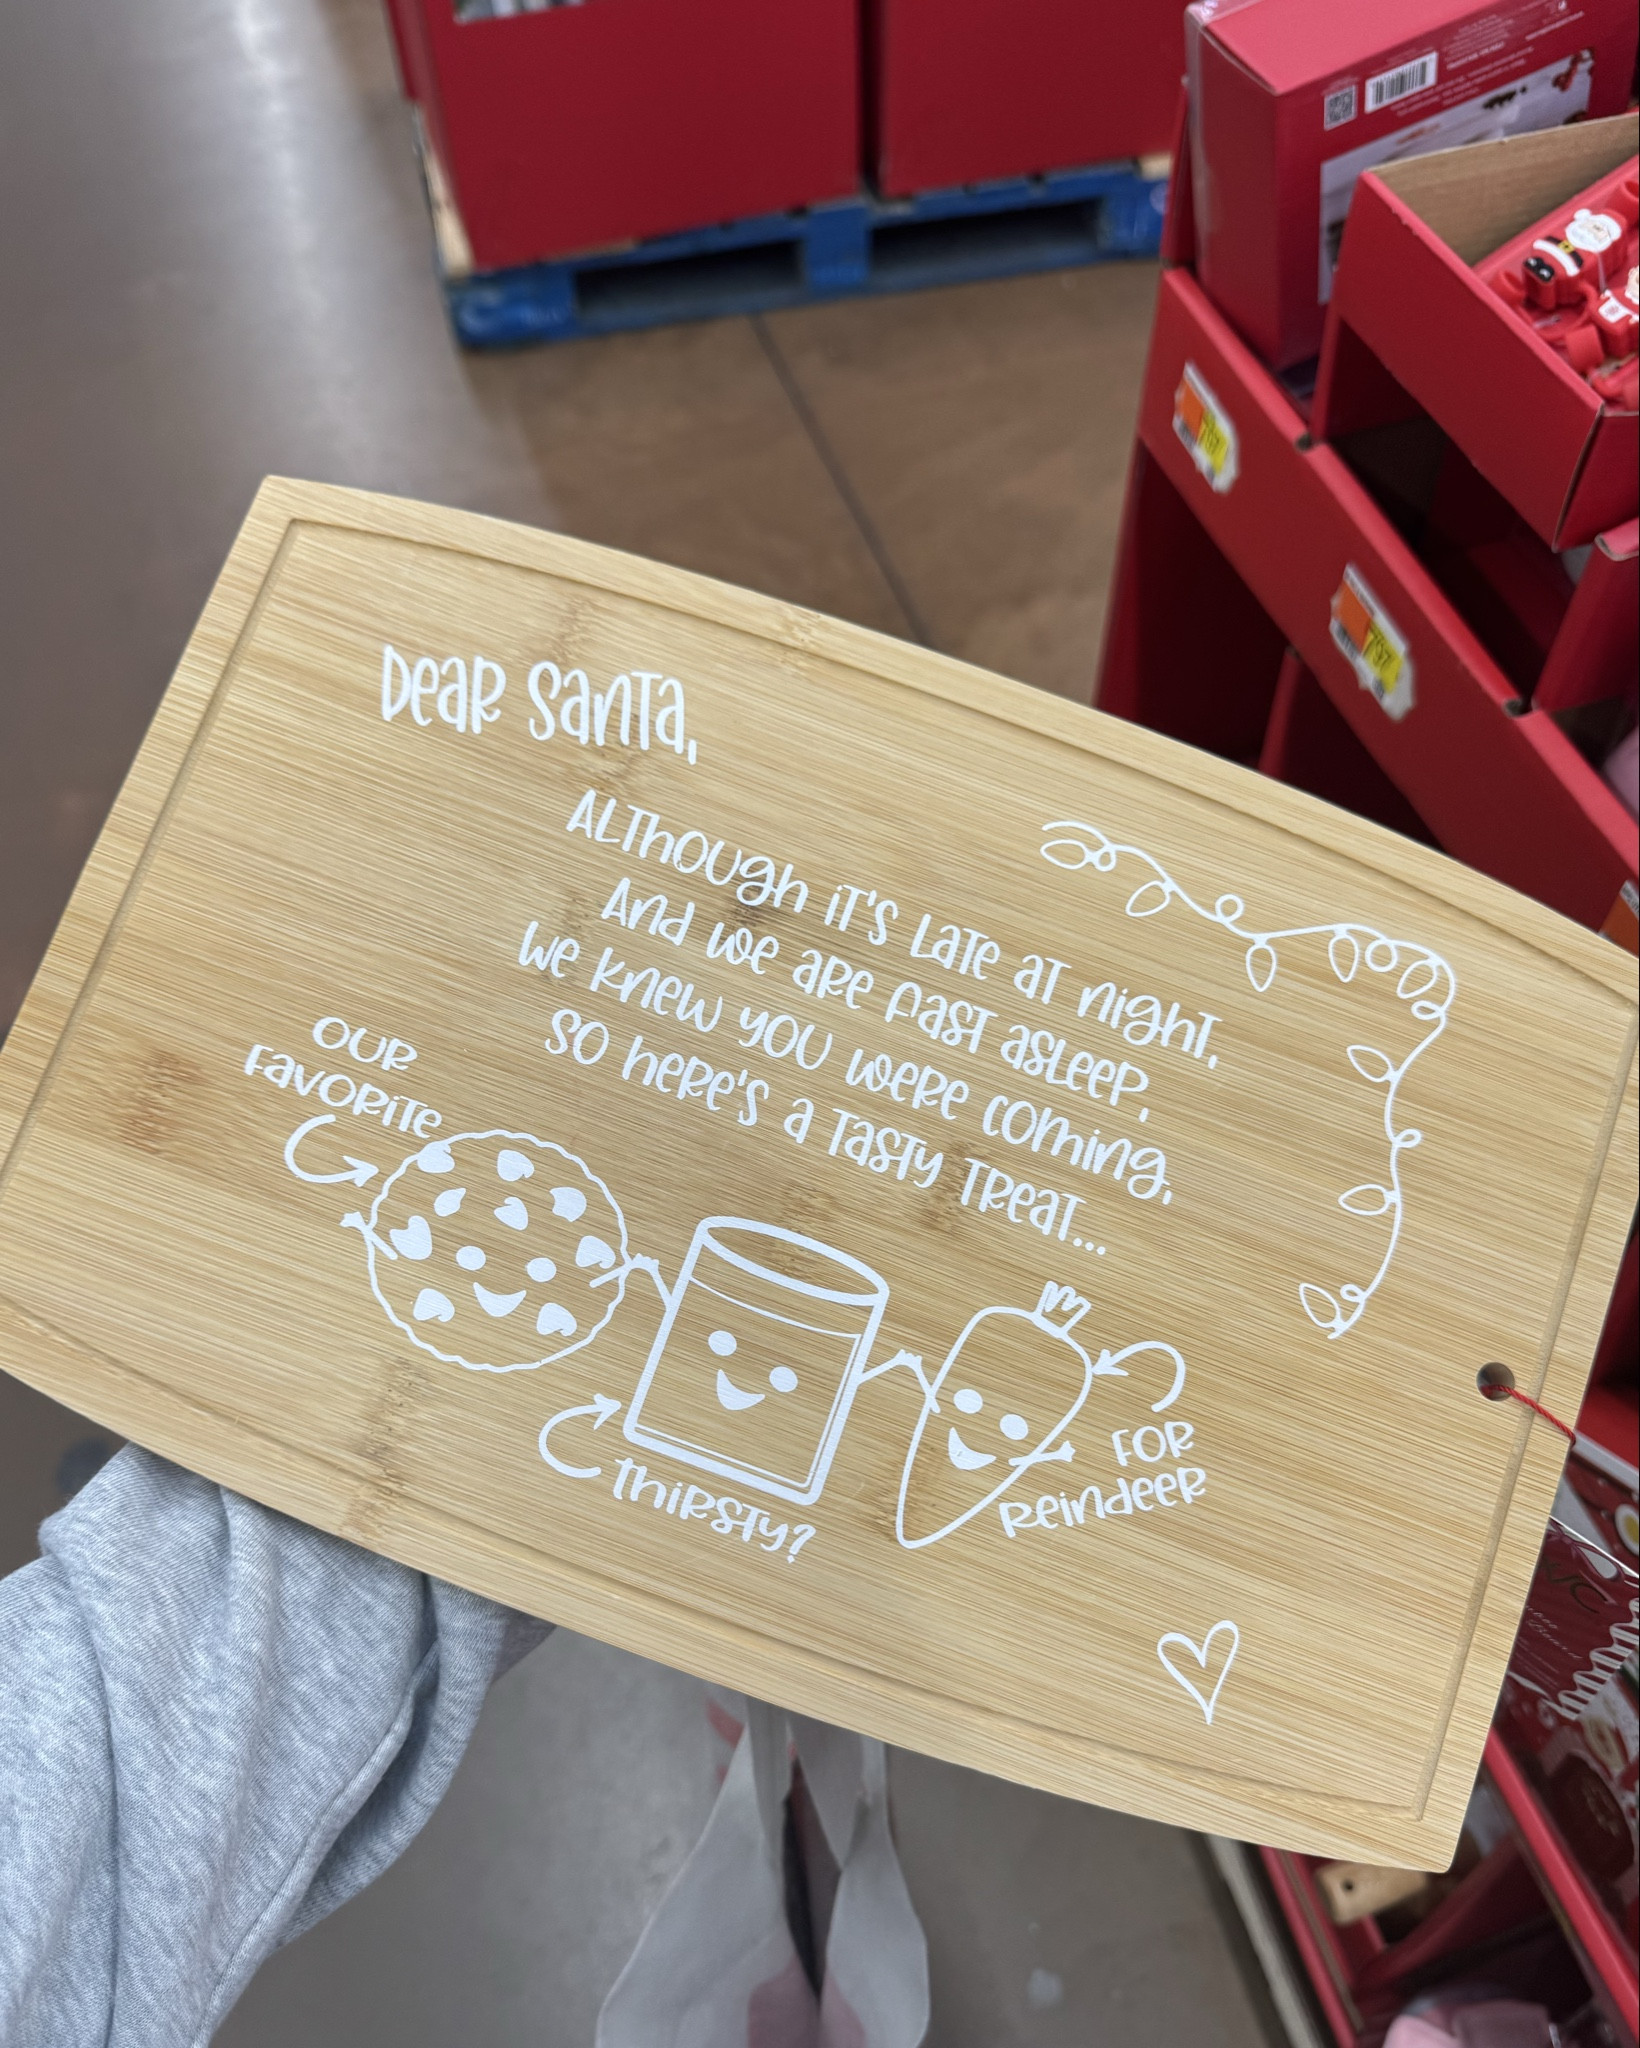 Dear Santa,
Although it's late at night,
And we are fast asleep,
We knew you were coming,
So here's a tasty treat...
OUR
FAVORITE
Thirsty?
FOR
Reindeer